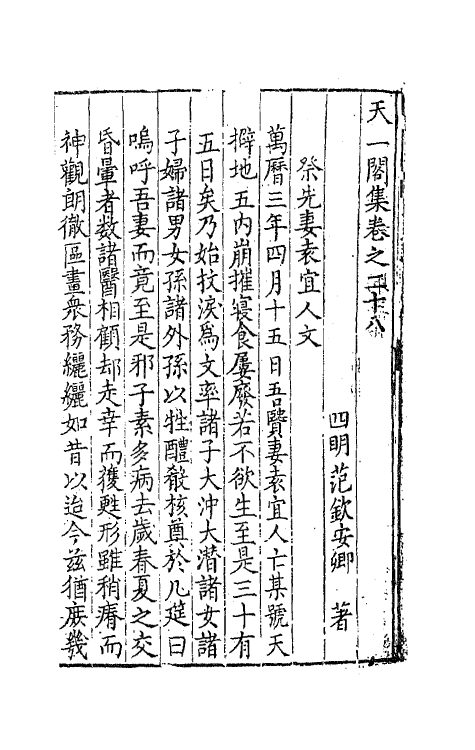 天一閣集卷之二十八
四明范欽安卿 著
祭先妻袁宜人文
萬曆三年四月十五日吾賢妻袁宜人亡某號天
擗地五内崩摧寢食屢廢若不欲生至是三十有
五日矣乃始抆淚為文率諸子大沖大潛諸女諸
子婦諸男女孫諸外孫以牲醴殽核奠於几筵曰
嗚呼吾妻而竟至是邪子素多病去歲春夏之交
昏暈者数諸醫相顧却走幸而獲甦形雖稍瘠而
神觀朗徹區畫衆務纚纚如昔以迨今兹猶庻幾